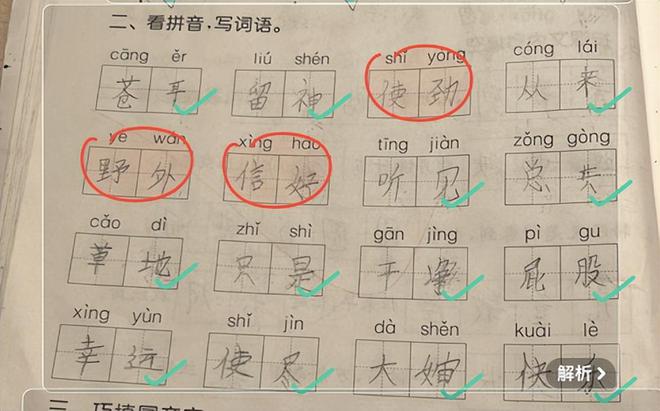 二、看拼音,写词语。
cāng ěr liú shén shǐ yòng cóng lái
苍耳 留神 使劲 从来
yě wán xìng hǎo tīng jiàn zǒng gòng
野外 信好 听见 总共
cǎo dì zhǐ shì gān jìng pì gu
草地 只是 干净 屁股
xìng yùn shǐ jìn dà shěn kuài lè
幸运 使尽 大婶 快乐
解析